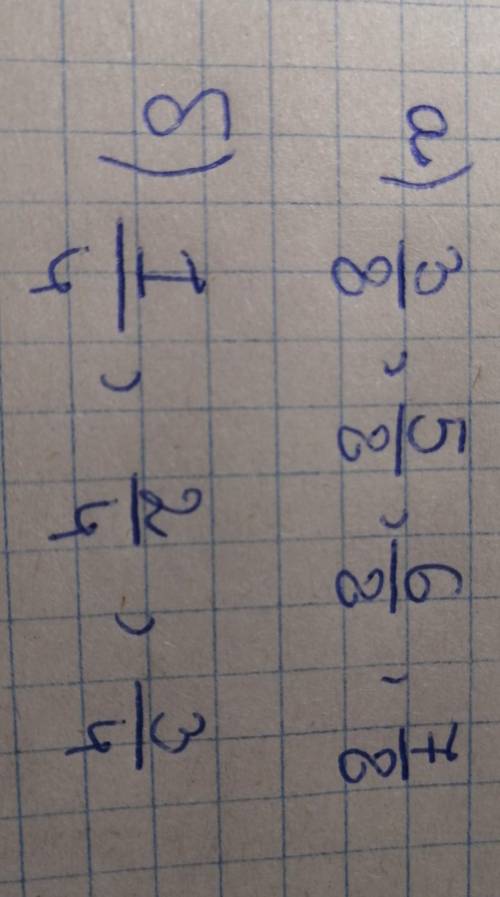 а) 3/8, 5/8, 6/8, 7/8
б) 1/4, 2/4, 3/4